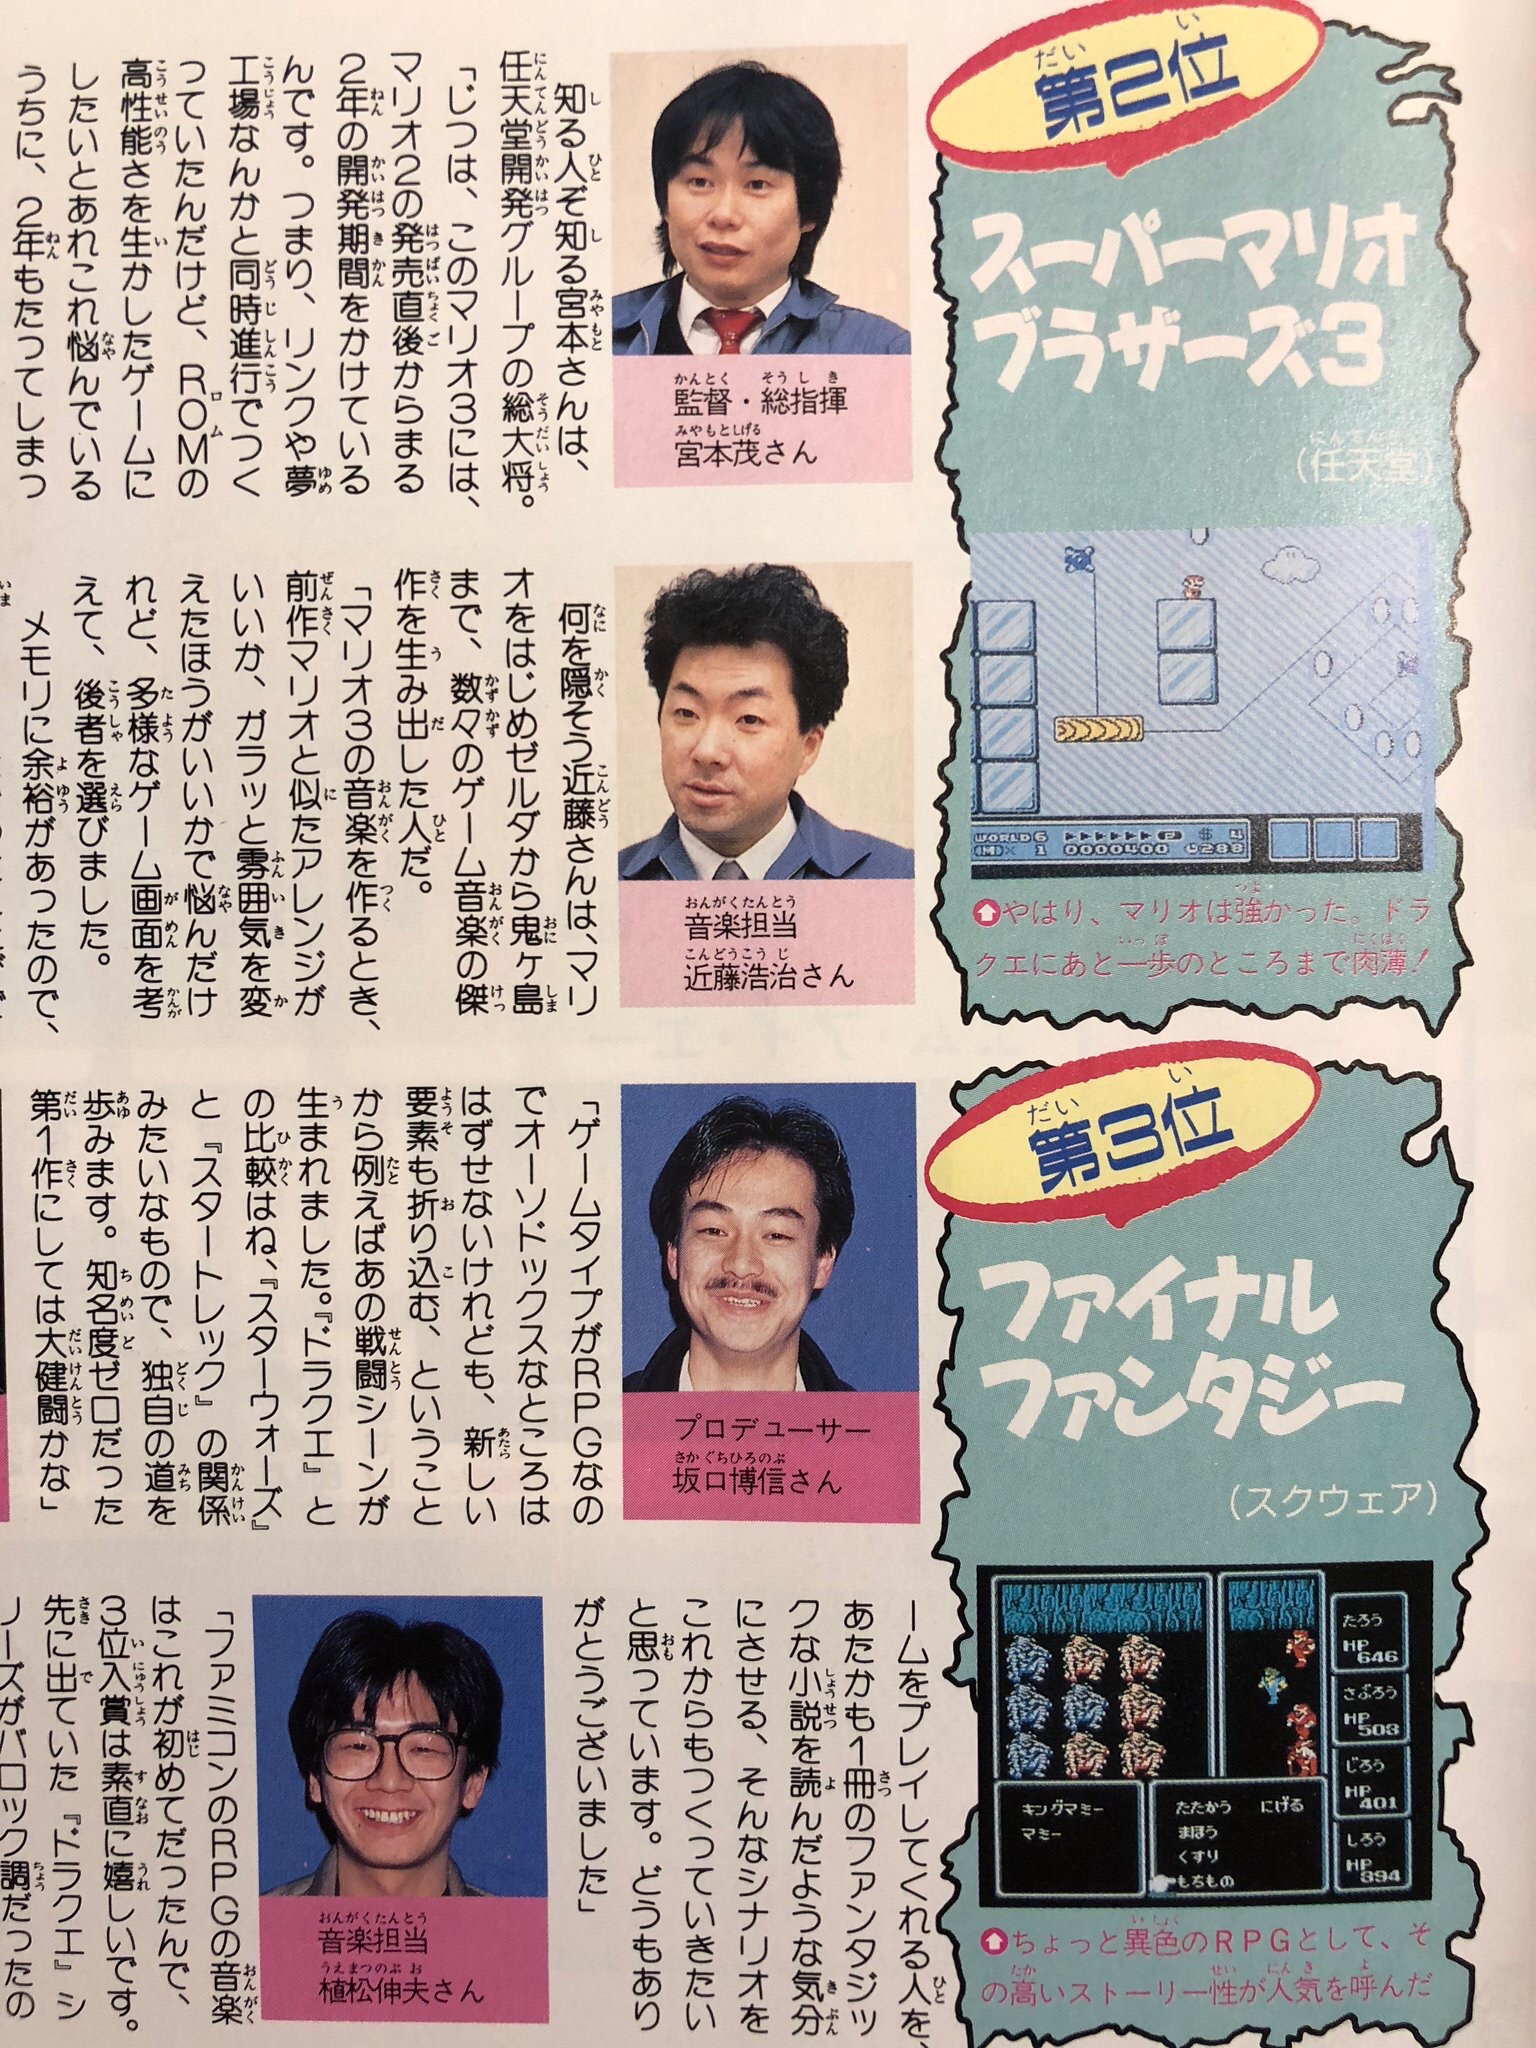 第2位
スーパーマリオ
ブラザーズ3
(任天堂)
WORLD6
(M)× 1 0000400 288
$ 4
やはり、マリオは強かった。ドラ
クエにあと一歩のところまで肉薄!
監督・総指揮
宮本茂さん
知る人ぞ知る宮本さんは、
任天堂開発グループの総大将。
「じつは、このマリオ3には、
マリオ2の発売直後からまる
2年の開発期間をかけている
んです。つまり、リンクや夢
工場なんかと同時進行でつく
っていたんだけど、ROMの
高性能さを生かしたゲームに
したいとあれこれ悩んでいる
うちに、2年もたってしまっ
音楽担当
近藤浩治さん
何を隠そう近藤さんは、マリ
オをはじめゼルダから鬼ヶ島
まで、数々のゲーム音楽の傑
作を生み出した人だ。
「マリオ3の音楽を作るとき、
前作マリオと似たアレンジが
いいか、ガラッと雰囲気を変
えたほうがいいかで悩んだけ
れど、多様なゲーム画面を考
えて、後者を選びました。
メモリに余裕があったので、
第3位
ファイナル
ファンタジー
(スクウェア)
たろう
HP
646
さぶろう
HP
503
じろう
HP
401
しろう
HP
394
キングマミー
マミー
たたかう にげる
まほう
くすり
もちもの
ちょっと異色のRPGとして、そ
の高いストーリー性が人気を呼んだ
プロデューサー
坂口博信さん
「ゲームタイプがRPGなの
でオーソドックスなところは
はずせないけれども、新しい
要素も折り込む、ということ
から例えばあの戦闘シーンが
生まれました。『ドラクエ』と
の比較はね、『スターウォーズ』
と『スタートレック』の関係
みたいなもので、独自の道を
歩みます。知名度ゼロだった
第1作にしては大健闘かな」
ームをプレイしてくれる人を、
あたかも1冊のファンタジッ
クな小説を読んだような気分
にさせる、そんなシナリオを
これからもつくっていきたい
と思っています。どうもあり
がとうございました」
音楽担当
植松伸夫さん
「ファミコンのRPGの音楽
はこれが初めてだったんで、
3位入賞は素直に嬉しいです。
先に出ていた『ドラクエ』シ
リーズがバロック調だったの